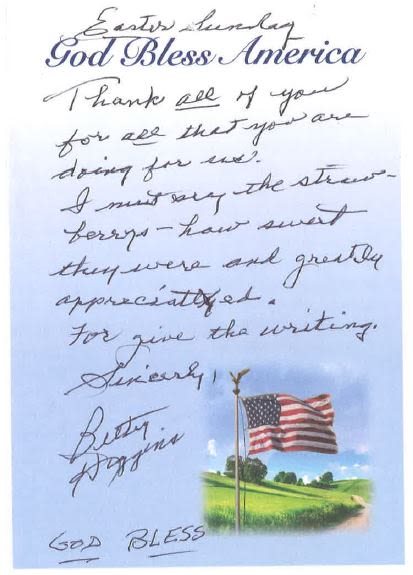 Easter Sunday
God Bless America
Thank all of you
for all that you are
doing for us.
I must say the straw-
berrys - how sweet
they were and greatly
appreciated.
For give the writing.
Sincerly,
Betty
God Bless